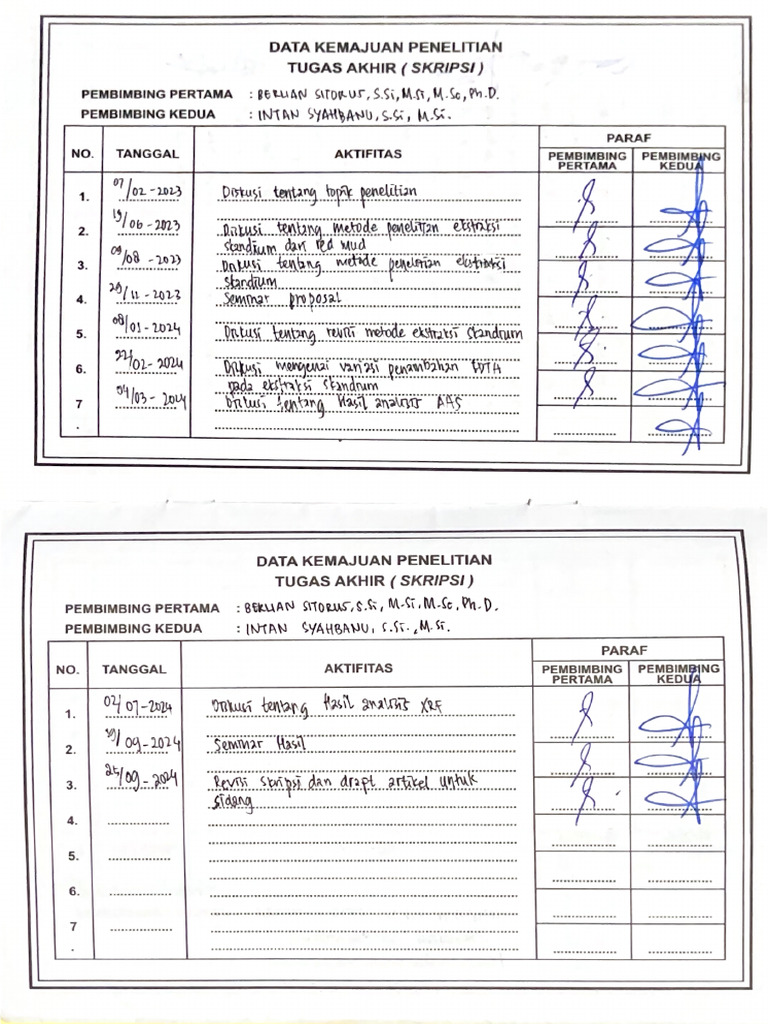 DATA KEMAJUAN PENELITIAN
TUGAS AKHIR ( SKRIPSI )
PEMBIMBING PERTAMA : BERLIAN SITORUS, S.Si, M.Si, M.Sc, Ph.D.
PEMBIMBING KEDUA : INTAN SYAHBANU, S.Si, M.Si.
NO. TANGGAL AKTIFITAS PARAF
PEMBIMBING PERTAMA PEMBIMBING KEDUA
1. 07/02-2023 Diskusi tentang topik penelitian
2. 19/06-2023 Diskusi tentang metode penelitian ekstraksi
skandium dari red mud
3. 09/08-2023 Diskusi tentang metode penelitian ekstraksi
skandium
4. 29/11-2023 Seminar proposal
5. 08/01-2024 Diskusi tentang revisi metode ekstraksi skandium
6. 22/02-2024 Diskusi mengenai variasi penambahan EDTA
pada ekstraksi skandium
7. 04/03-2024 Diskusi tentang Hasil analisis AAS
DATA KEMAJUAN PENELITIAN
TUGAS AKHIR ( SKRIPSI )
PEMBIMBING PERTAMA : BERLIAN SITORUS, S.Si, M.Si, M.Sc, Ph.D.
PEMBIMBING KEDUA : INTAN SYAHBANU, S.Si., M.Si.
NO. TANGGAL AKTIFITAS PARAF
PEMBIMBING PERTAMA PEMBIMBING KEDUA
1. 02/07-2024 Diskusi tentang Hasil analisis XRF
2. /09-2024 Seminar Hasil
3. 25/09-2024 Revisi skripsi dan drapt artikel untuk
sidang
4.
5.
6.
7.